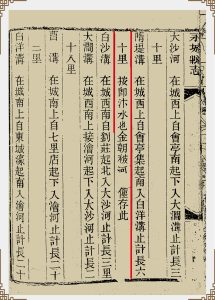 永城縣志
大沙河 在城西上自會亭南起下入大澗溝止計長三
十里
隋堤溝 在城西上自會亭集起南入白洋溝止計長六
十里 按卽汴水也金朝被河 僅存此
白沙溝 在城西南自劉莊起北入大沙河止計長三里
大澗溝 在城西南上接澮河起下入大沙河止計長二
十八里
苢溝 在城南上自七里店起下入澮河止計長二十
二里
白洋溝 在城南上自東坡壕起南入澮河止計長二十